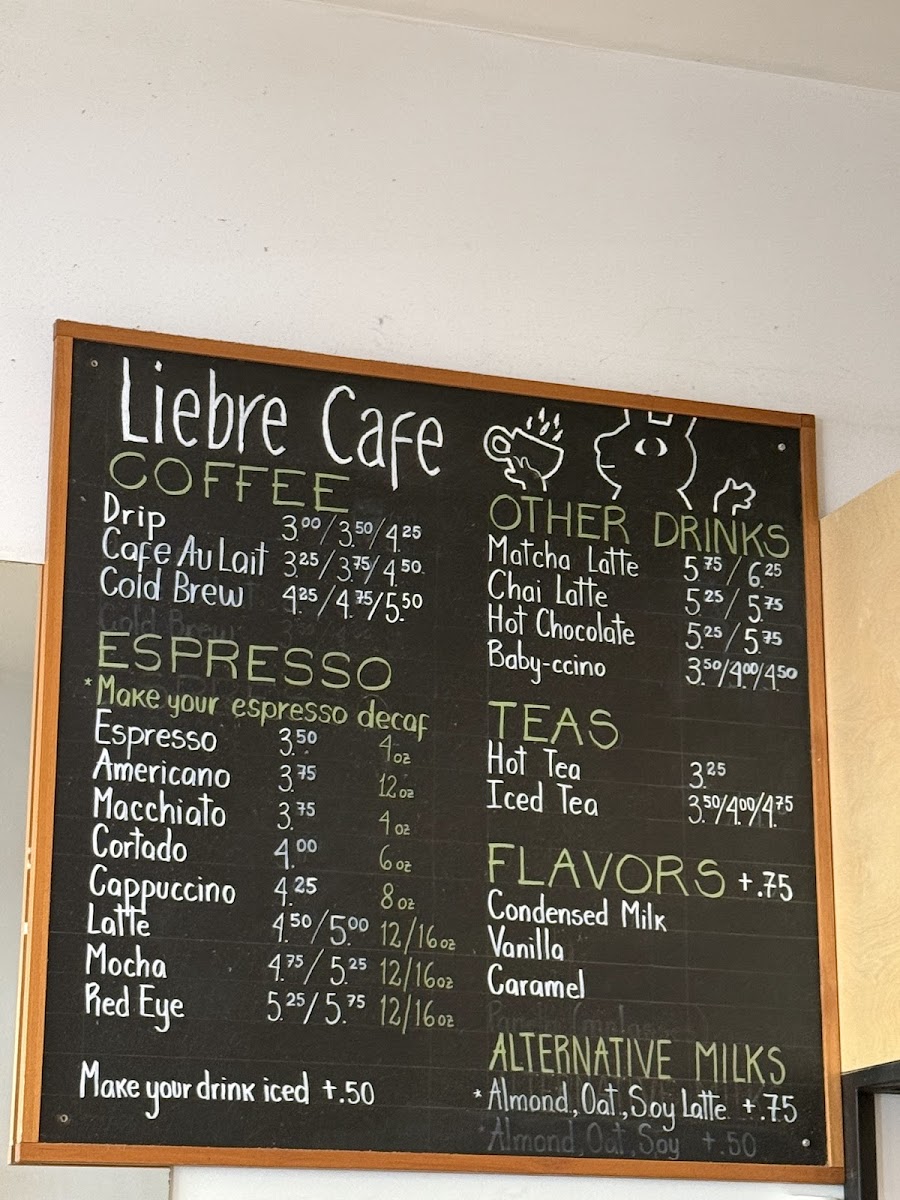 Liebre Cafe
COFFEE
Drip 3.00/3.50/4.25
Cafe Au Lait 3.25/3.75/4.50
Cold Brew 4.25/4.75/5.50
Cold Brew
ESPRESSO
*Make your espresso decaf
Espresso 3.50 4oz
Americano 3.75 12oz
Macchiato 3.75 4oz
Cortado 4.00 6oz
Cappuccino 4.25 8oz
Latte 4.50/5.00 12/16oz
Mocha 4.75/5.25 12/16oz
Red Eye 5.25/5.75 12/16oz
Make your drink iced +.50
OTHER DRINKS
Matcha Latte 5.75/6.25
Chai Latte 5.25/5.75
Hot Chocolate 5.25/5.75
Baby-ccino 3.50/4.00/4.50
TEAS
Hot Tea 3.25
Iced Tea 3.50/4.00/4.75
FLAVORS +.75
Condensed Milk
Vanilla
Caramel
ALTERNATIVE MILKS
*Almond, Oat, Soy Latte +.75
*Almond, Oat, Soy +.50